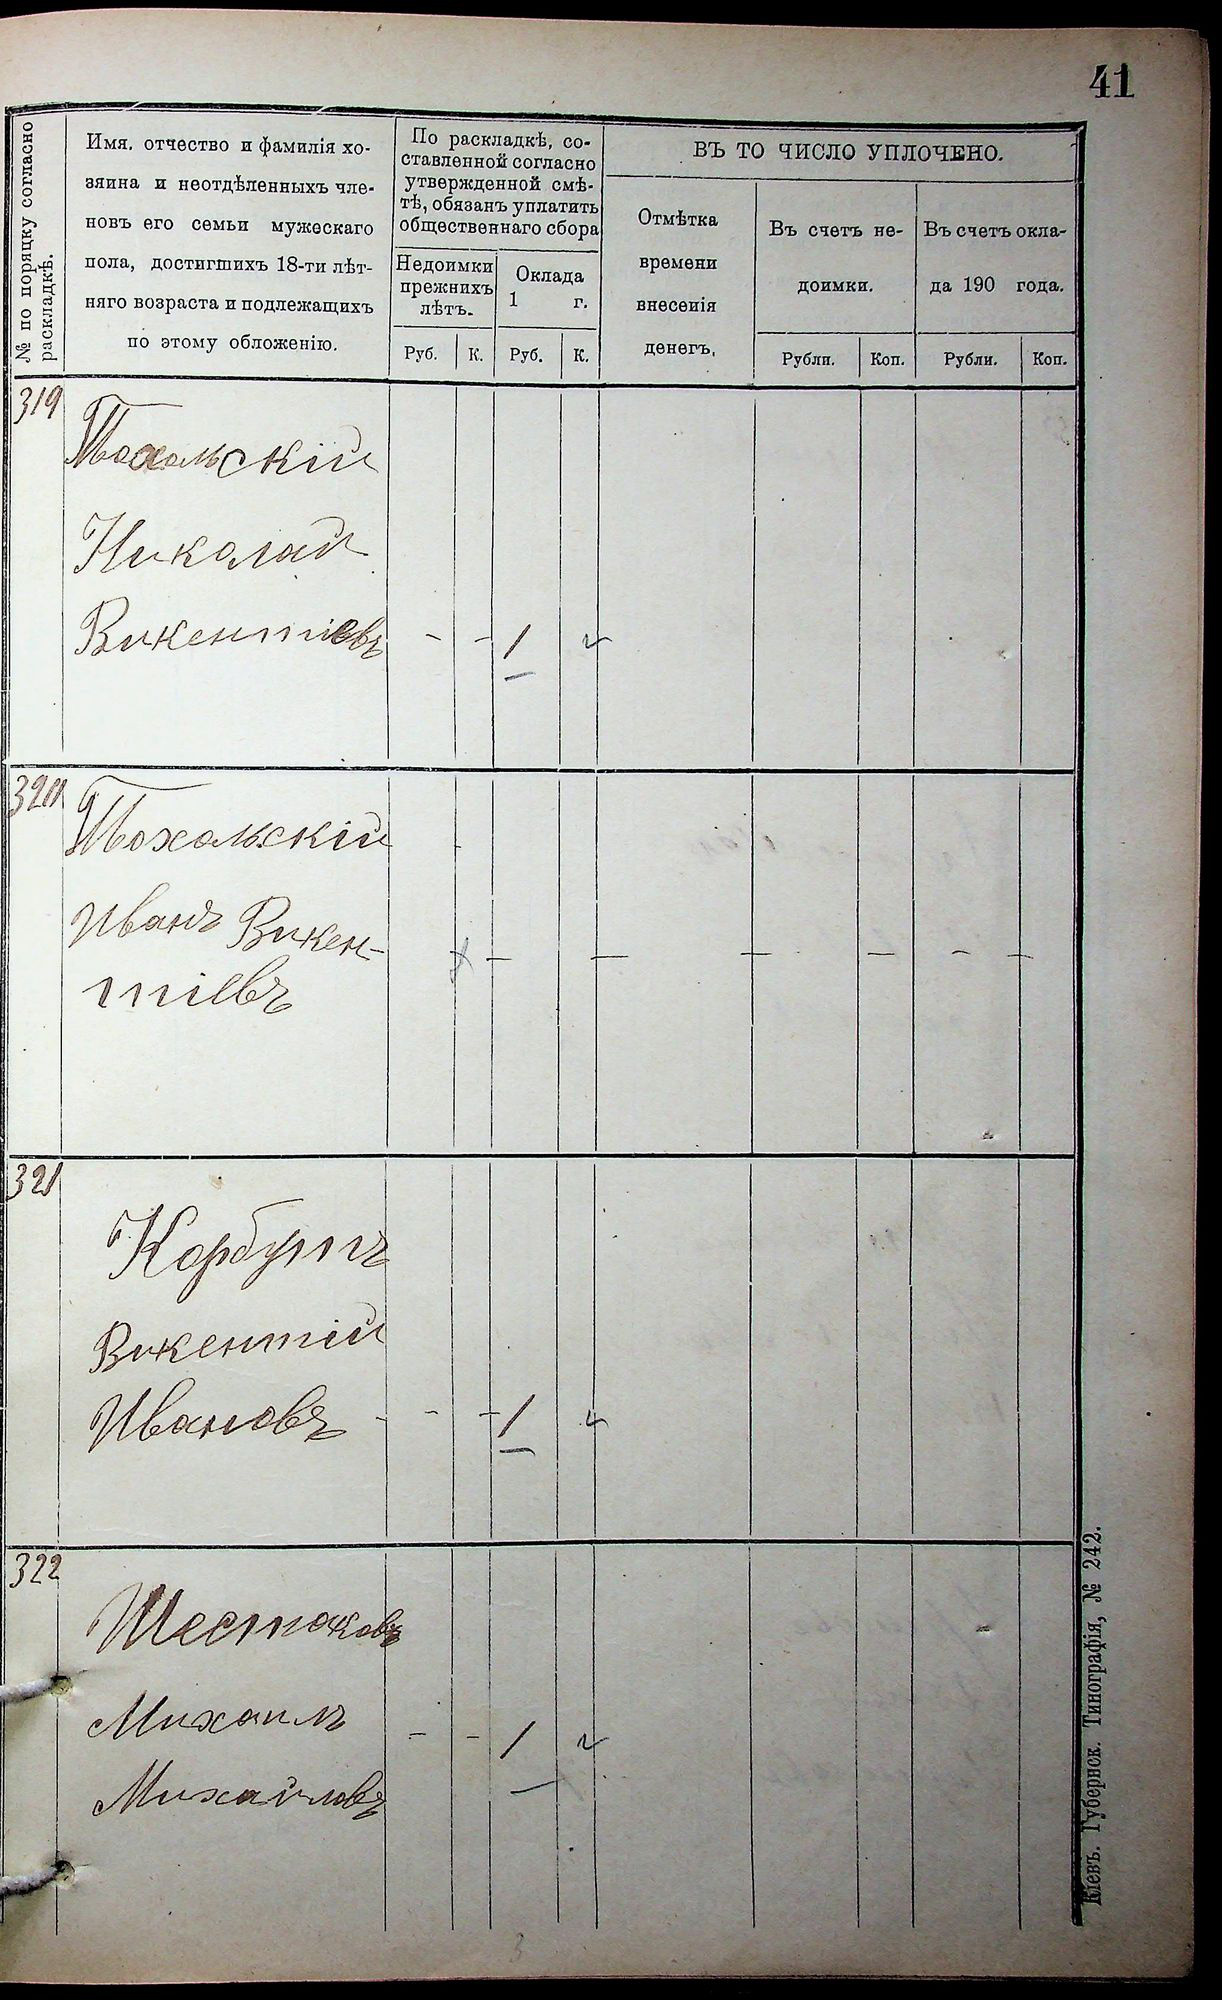 41
№ по поряцку согласно
раскладкѣ.
Имя. отчество и фамилія хо-
зяина и неотдѣленныхъ чле-
новъ его семьи мужескаго
пола, достигшихъ 18-ти лѣт-
няго возраста и подлежащихъ
по этому обложенію.
По раскладкѣ, со-
ставленной согласно
утвержденной смѣ-
тѣ, обязанъ уплатить
общественнаго сбора
Недоимки
прежнихъ
лѣтъ.
Оклада
1 г.
Руб. К. Руб. К.
ВЪ ТО ЧИСЛО УПЛОЧЕНО.
Отмѣтка
времени
внесенія
денегъ.
Въ счетъ не-
доимки.
Въ счетъ окла-
да 190 года.
Рубли. Коп. Рубли. Коп.
319
Похальскій
Николай
Викентіевъ - - 1 "
320
Похальскій
Иванъ Викен-
тіевъ
321
Корбутъ
Викентій
Ивановъ - - - 1 "
322
Шестаковъ
Михаилъ - - 1 "
Михайловъ
Кіевъ. Губернск. Типографія, № 242.